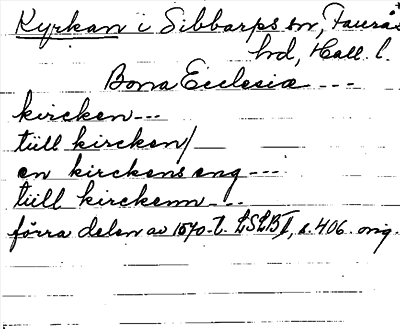 Kyrkan i Sibbarps sn, Faurås
hd, Hall. l.
Bona Ecclesiæ ---
kircken ---
tiill kircken/
en kirckens eng ---
tiill kirckenn ---
förra delen av 1570-t. LSLB I, s. 406. orig.